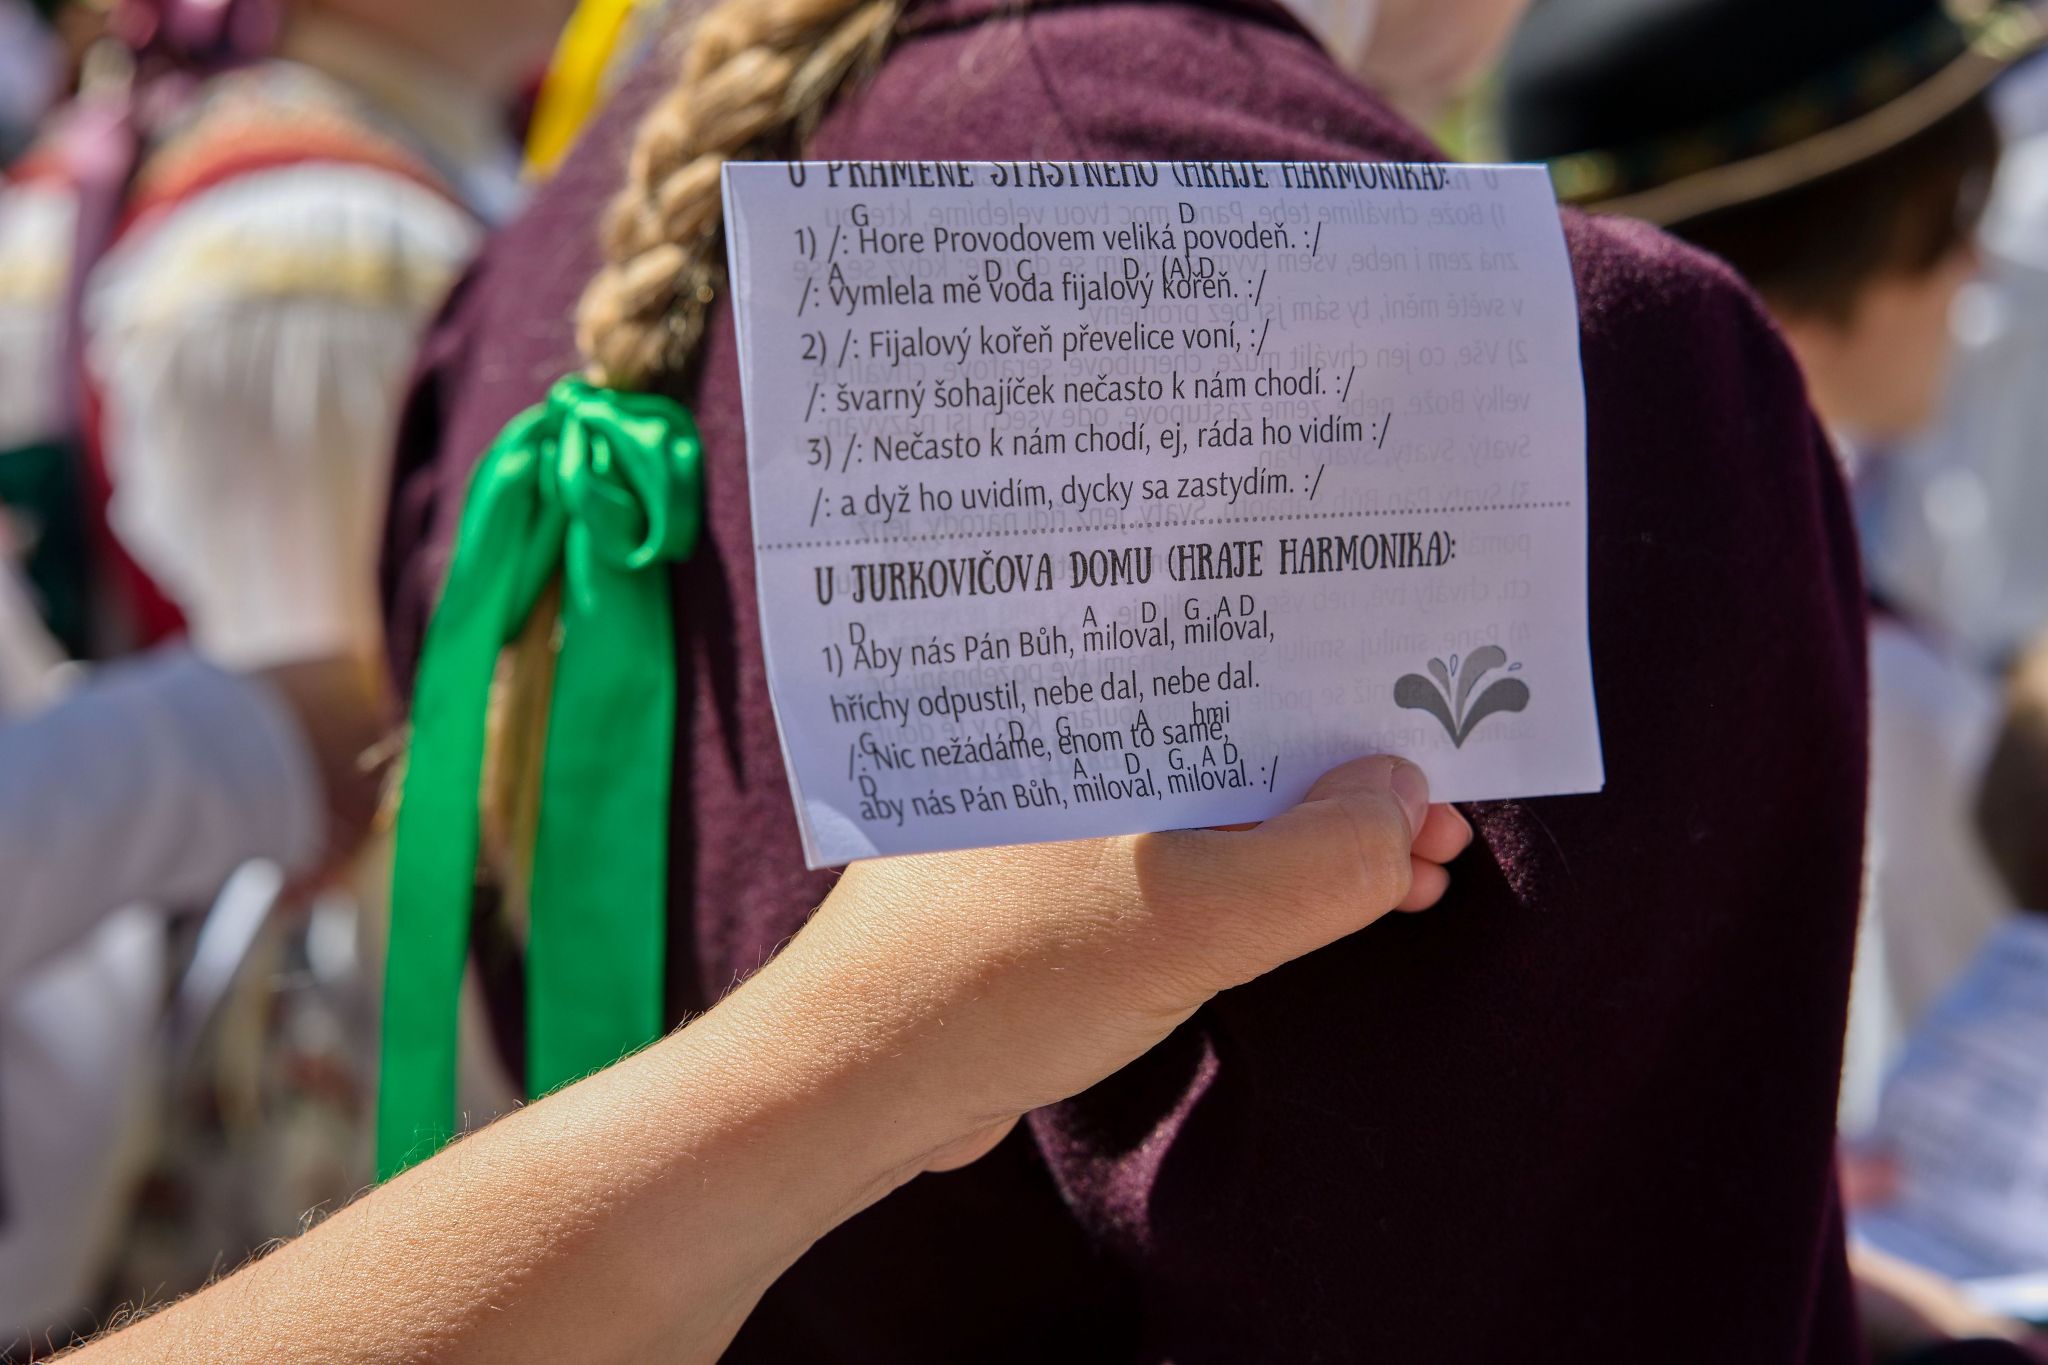 U PRAMENE ŠŤASTNÉHO (HRAJE HARMONIKA):
G D
1) /: Hore Provodovem veliká povodeň. :/
A D G D (A) D
/: vymlela mě voda fijalový kořeň. :/
2) /: Fijalový kořeň převelice voní, :/
/: švarný šohajíček nečasto k nám chodí. :/
3) /: Nečasto k nám chodí, ej, ráda ho vidím :/
/: a dyž ho uvidím, dycky sa zastydím. :/
U JURKOVIČOVA DOMU (HRAJE HARMONIKA):
D A D G A D
1) Aby nás Pán Bůh, miloval, miloval,
hříchy odpustil, nebe dal, nebe dal.
G D G A hmi
/: Nic nežádáme, enom to samé,
D A D G A D
aby nás Pán Bůh, miloval, miloval. :/